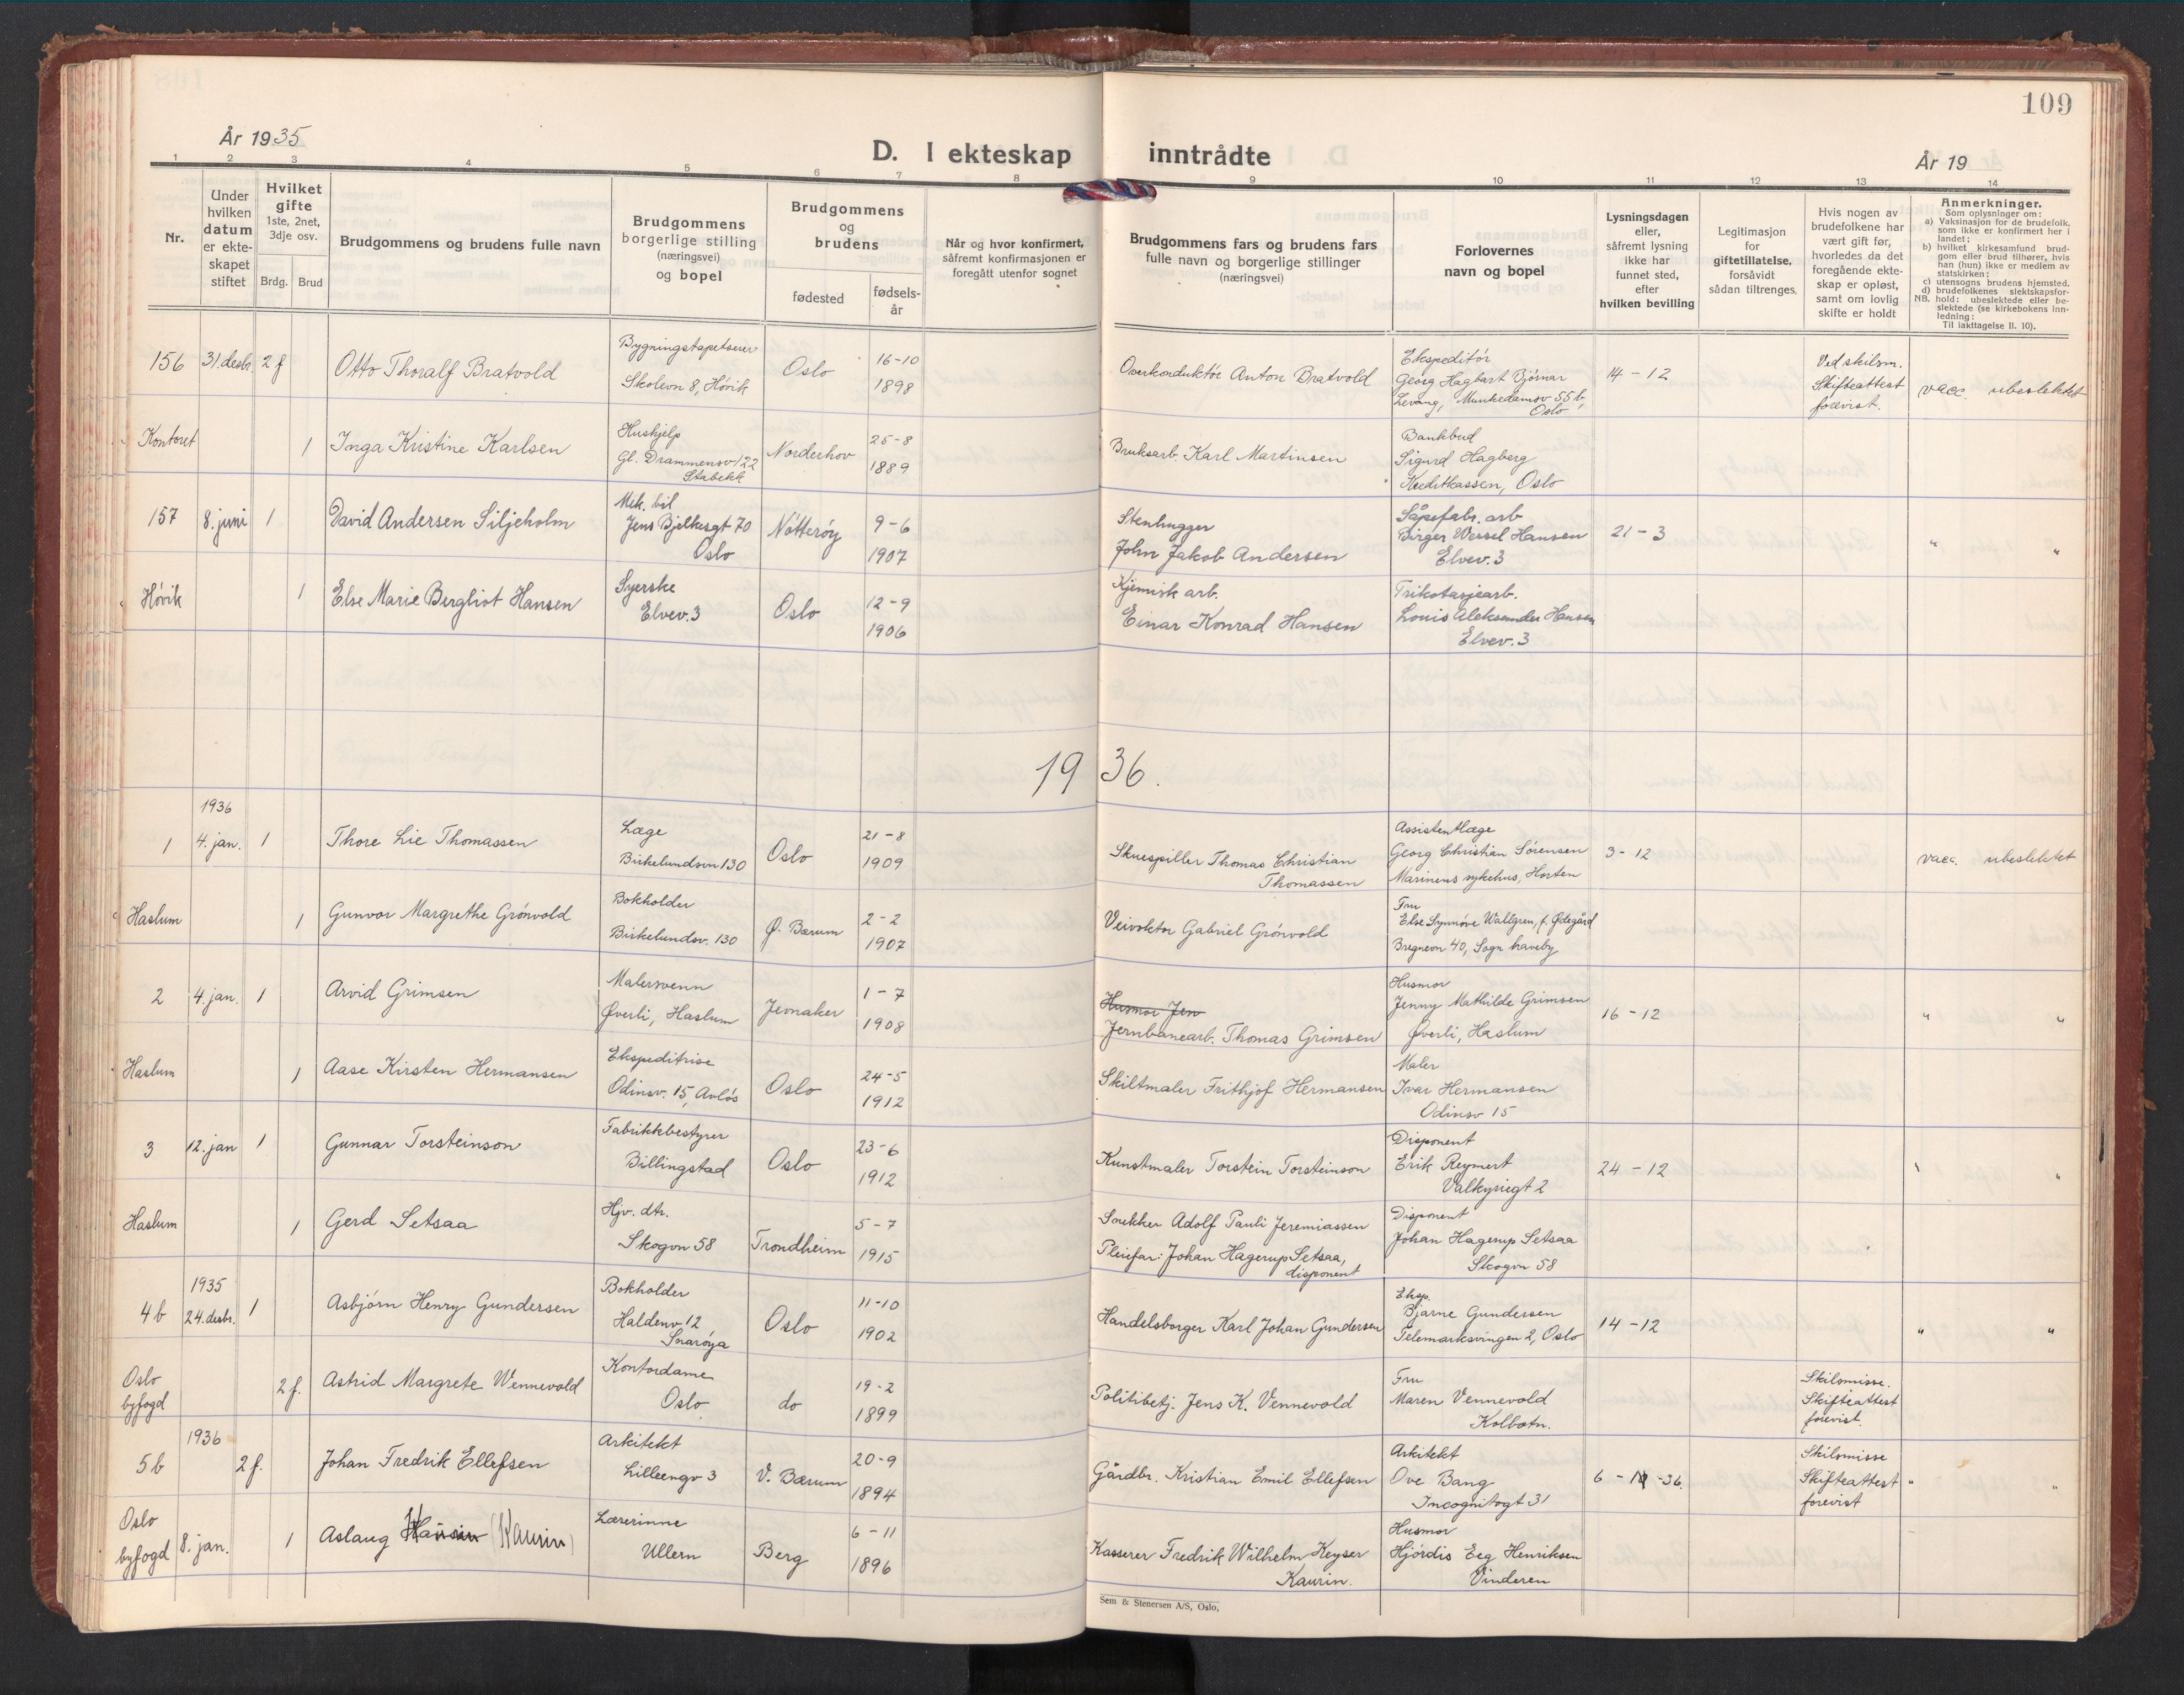 109
År 1935
D. I ekteskap inntrådte
År 19
1 2 3 4 5 6 7 8 9 10 11 12 13 14
Nr.
Under hvilken datum er ekteskapet stiftet
Hvilket gifte 1ste, 2net, 3dje osv.
Brdg. Brud
Brudgommens og brudens fulle navn
Brudgommens borgerlige stilling (næringsvei) og bopel
Brudgommens og brudens
fødested
fødsels-år
Når og hvor konfirmert, såfremt konfirmasjonen er foregått utenfor sognet
Brudgommens fars og brudens fars fulle navn og borgerlige stillinger (næringsvei)
Forlovernes navn og bopel
Lysningsdagen eller, såfremt lysning ikke har funnet sted, efter hvilken bevilling
Legitimasjon for giftetillatelse, forsåvidt sådan tiltrenges.
Hvis nogen av brudefolkene har vært gift før, hvorledes da det foregående ekteskap er opløst, samt om lovlig skifte er holdt
Anmerkninger.
Som oplysninger om:
a) Vaksinasjon for de brudefolk, som ikke er konfirmert her i landet;
b) hvilket kirkesamfund brudgom eller brud tilhører, hvis han (hun) ikke er medlem av statskirken;
c) utensogns brudens hjemsted.
d) brudefolkenes slektskapsforhold: ubeslektede eller beslektede (se kirkebokens innledning:
NB.
Til iakttagelse II. 10).
156 31. desbr. 2 f Otto Thoralf Bratvold Bygningstapetserer Skolevn 8, Høvik Oslo 16-10 1898 Overkonduktør Anton Bratvold Ekspeditør Georg Hagbart Bjørnar Levang, Munkedamsv 55 b, Oslo 14-12 Ved skilsm. Skifteattest forevist. vacc. ubeslektet
Kontoret 1 Inga Kristine Karlsen Hushjelp Gl. Drammensv 122 Stabekk Norderhov 25-8 1889 Bruksarb. Karl Martinsen Bankbud Sigurd Hagberg Kreditkassen, Oslo
157 8. juni 1 David Andersen Siljeholm Mek. bil Jens Bjelkesgt 70 Oslo Nøtterøy 9-6 1907 Stenhugger John Jakob Andersen Såpefabr. arb Birger Wessel Hansen Elvev. 3 21-3 " "
Høvik 1 Else Marie Bergliot Hansen Syerske Elvev. 3 Oslo 12-9 1906 Kjemisk arb. Einar Konrad Hansen Trikotasjearb. Louis Aleksander Hansen Elvev. 3
1936.
1936
1 4. jan. 1 Thore Lie Thomassen Læge Birkelundsvn 130 Oslo 21-8 1909 Skuespiller Thomas Christian Thomassen Assistentlæge Georg Christian Sørensen Marinens sykehus, Horten 3-12 vacc. ubeslektet
Haslum 1 Gunvor Margrethe Grønvold Bokholder Birkelundsv. 130 Ø. Bærum 2-2 1907 Veivokter Gabriel Grønvold Fru Else Synnøve Wallgren, f. Ødegård Bregnevn 40, Sogn haveby
2 4. jan. 1 Arvid Grimsen Malersvenn Øverli, Haslum Jevnaker 1-7 1908 Husmor Jen Jernbanearb. Thomas Grimsen Husmor Jenny Mathilde Grimsen Øverli, Haslum 16-12 " "
Haslum 1 Aase Kirsten Hermansen Ekspeditrise Odinsv. 15, Avløs Oslo 24-5 1912 Skiltmaler Frithjof Hermansen Maler Ivar Hermansen Odinsv 15
3 12. jan 1 Gunnar Torsteinson Fabrikkbestyrer Billingstad Oslo 23-6 1912 Kunstmaler Torstein Torsteinson Disponent Erik Reymert Valkyriegt 2 24-12 " "
Haslum 1 Gerd Setsaa Hjv. dtr. Skogvn 58 Trondheim 5-7 1915 Snekker Adolf Pauli Jeremiassen Pleiefar: Johan Hagerup Setsaa, disponent Disponent Johan Hagerup Setsaa Skogvn 58
1935
4 b 24. desbr. 1 Asbjørn Henry Gundersen Bokholder Haldenv. 12 Snarøya Oslo 11-10 1902 Handelsborger Karl Johan Gundersen Eksp. Bjarne Gundersen Telemarksvingen 2, Oslo 14-12 " "
Oslo byfogd 2 f. Astrid Margrete Wennevold Kontordame Oslo do 19-2 1899 Politibetj. Jens K. Vennevold Fru Maren Vennevold Kolbotn. Skilsmisse. Skifteattest forevist.
1936
5 b 2 f. Johan Fredrik Ellefsen Arkitekt Lilleengv 3 V. Bærum 20-9 1894 Gårdbr. Kristian Emil Ellefsen Arkitekt Ove Bang Incognitogt 31 6-1-36. Skilsmisse Skifteattest forevist " "
Oslo byfogd 8. jan. 1 Aslaug (Kaurin) Lærerinne Ullern Berg 6-11 1896 Kasserer Fredrik Wilhelm Keyser Kaurin. Husmor Hjørdis Eeg Henriksen Vinderen
Sem & Stenersen A/S, Oslo.